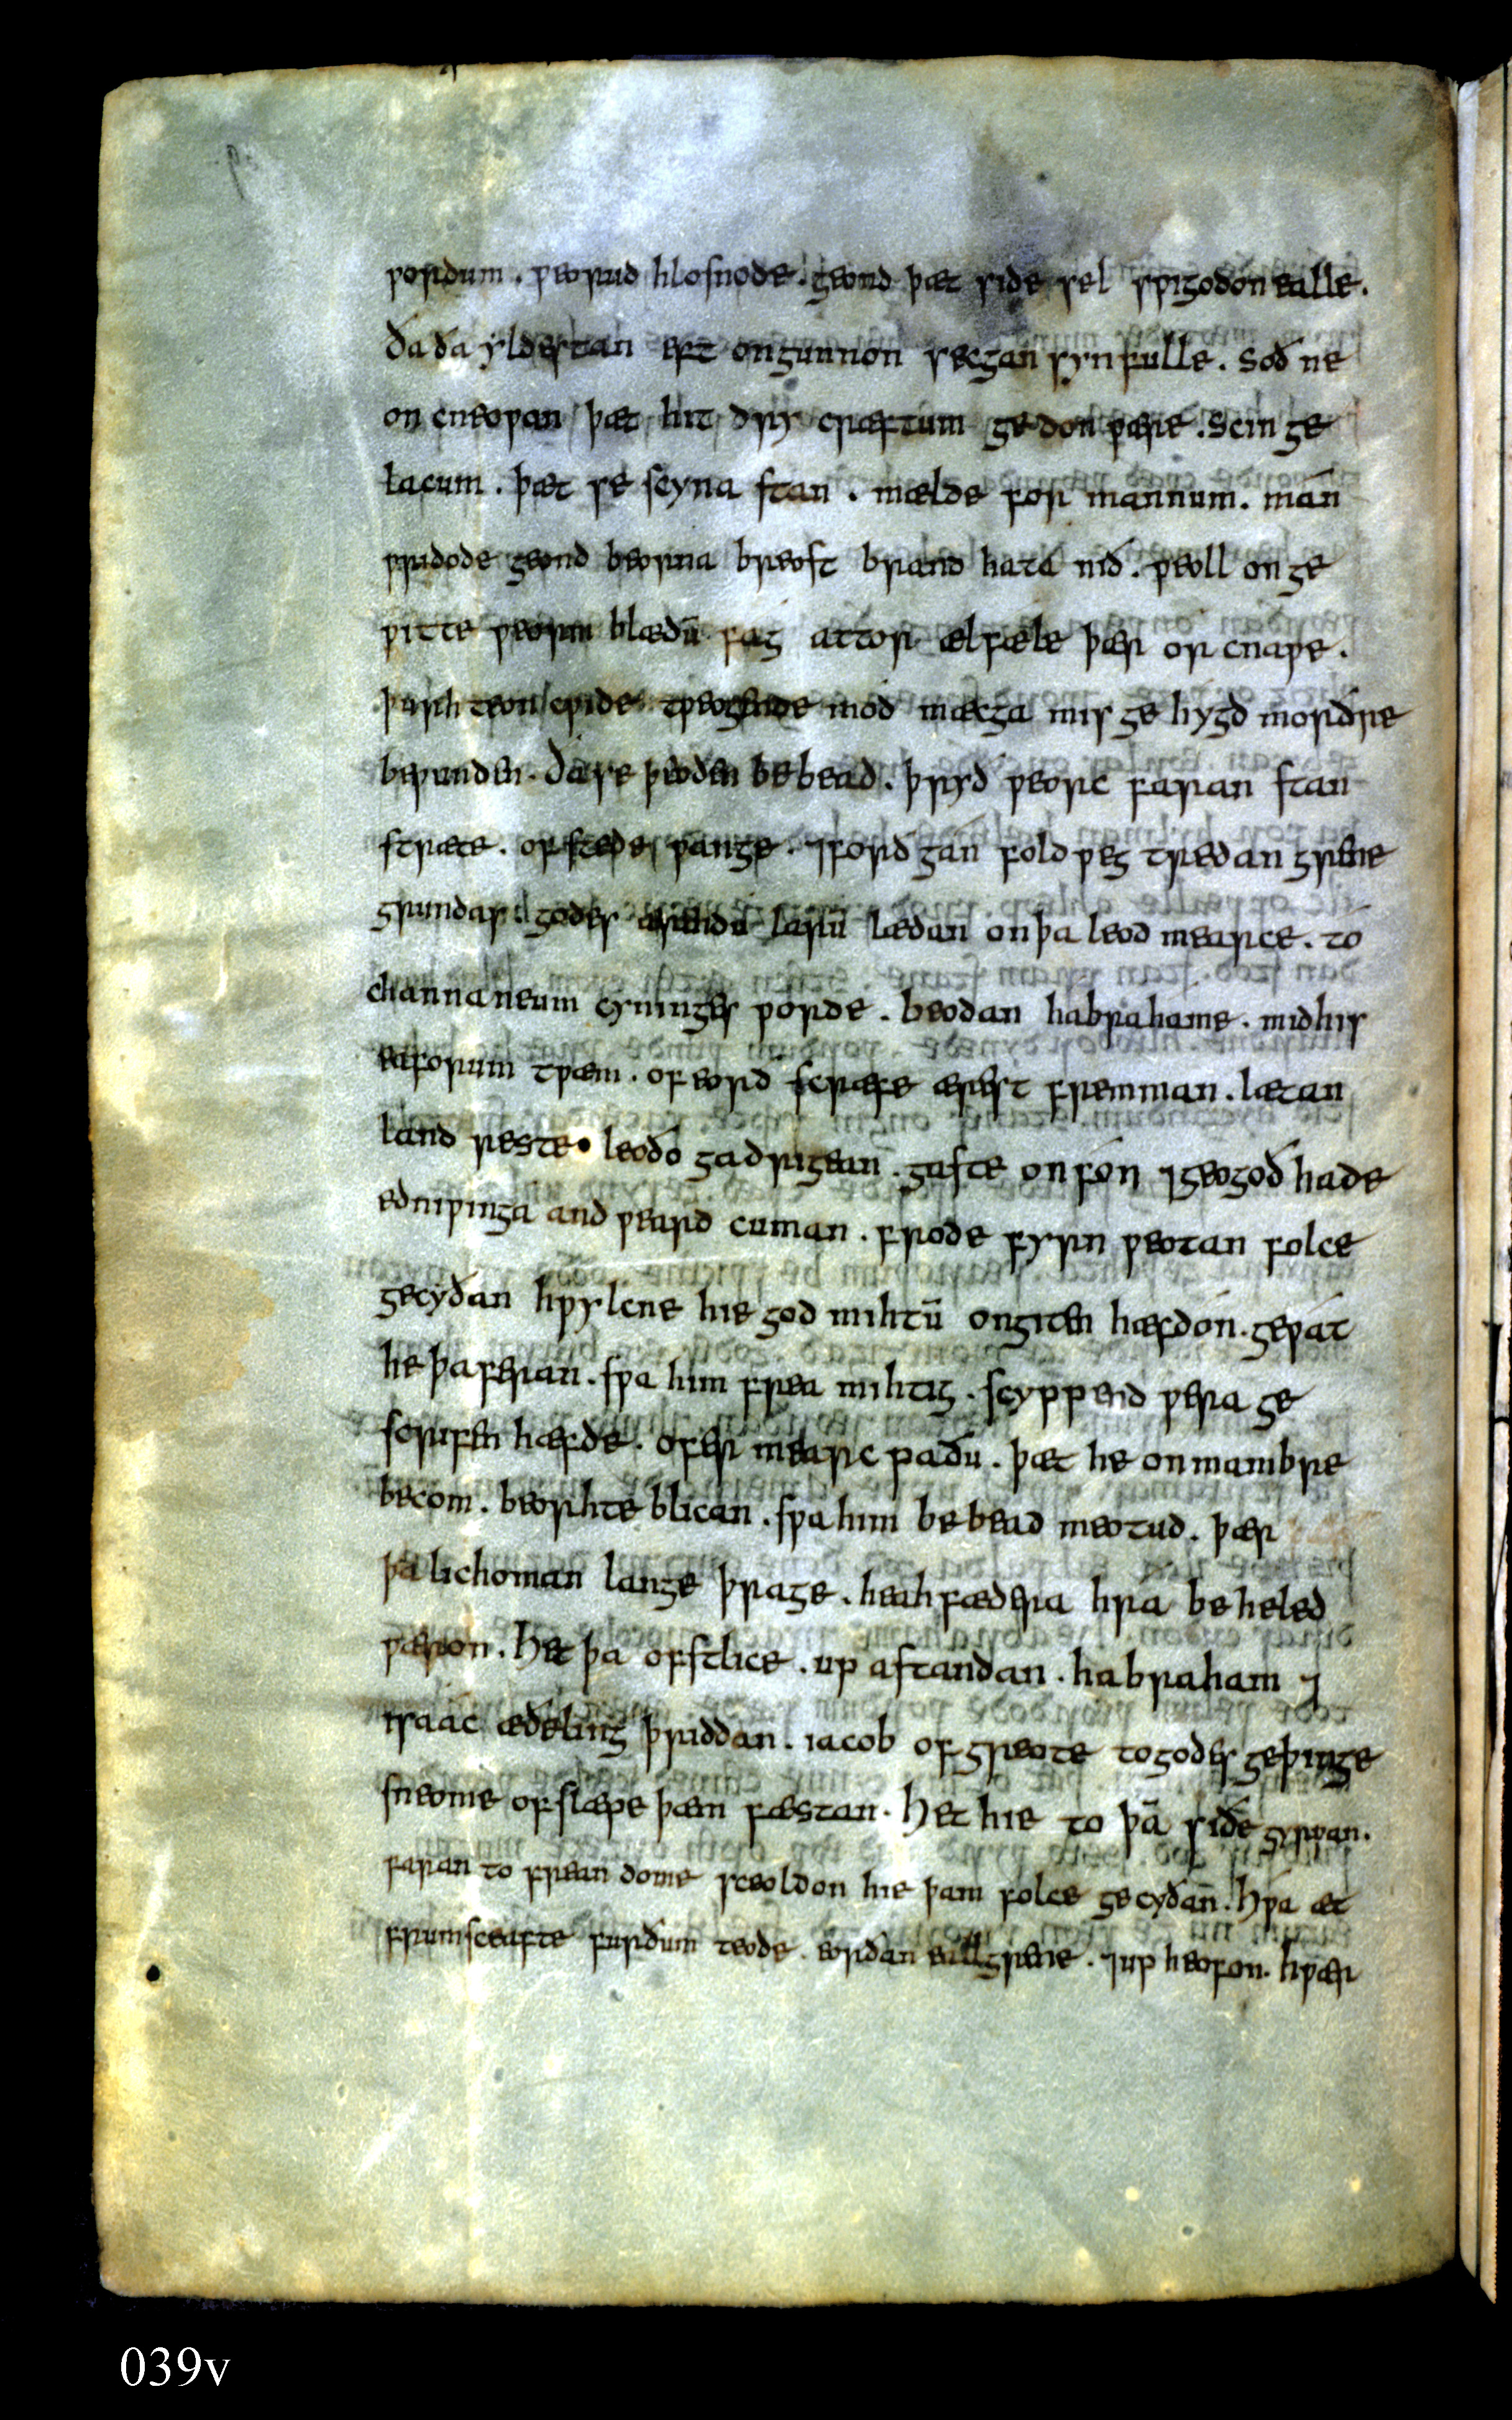 ƿordum . ƿeorud hlosnode . geond þæt side sel sƿigodon ealle .
ða ða yldestan eft ongunnon secgan synfulle . soð ne
on cneoƿan þæt hit dry cræftum ge don ƿære . scin ge
lacum . þæt se scyna stan . mælde for mannum . mán
ƿridode geond beorna breost brand hata nið . ƿeoll on ge
ƿitte ƿeorm blædū fag attor ælfæle þær or cnaƿe .
þurh teon cƿide tƿeogende mod mæcga mis ge hygd morðre
beƿunden . Ða se þeoden be bead . þryð ƿeorc faran stan
stræte . of stede ƿange . ⁊ forð gán fold ƿeg tredan grene
grundas . godes ærendu larū lædan on þa leod mearce . tó
channaneum cyninges ƿorde . beodan habrahame . mid his
eaforum tƿæm . of eorð scræfe ærest fremman . lætan
land reste . leoðo gadrigean . gaste onfón ⁊ geogoð hade
edniƿinga and ƿeard cuman . frode fyrn ƿeotan folce
gecyðan hƿylcne hie god mihtū ongiten hæfdón . geƿát
he þa feran . sƿa him frea mihtig . scyppend ƿera ge
scrifen hæfde . ofer mearc paðu . þæt he on mambre
becom . beorhte blican . sƿa him be bead meotud . þær
þa lichoman lange þrage . heah fædera hrá be heled
ƿæron . Het þa ofstlice . up astandan . habraham ⁊
isaác æðeling þriddan . iacob of greote to godes geþinge
sneome of slæpe þæm fæstan . Het hie to þā siðe gyrƿan .
faran to frean dome sceoldon hie þam folce gecyðan . hƿa æt
frumsceafte furðum teode . eorðan eallgrene . ⁊ up heofon . hƿær
039v